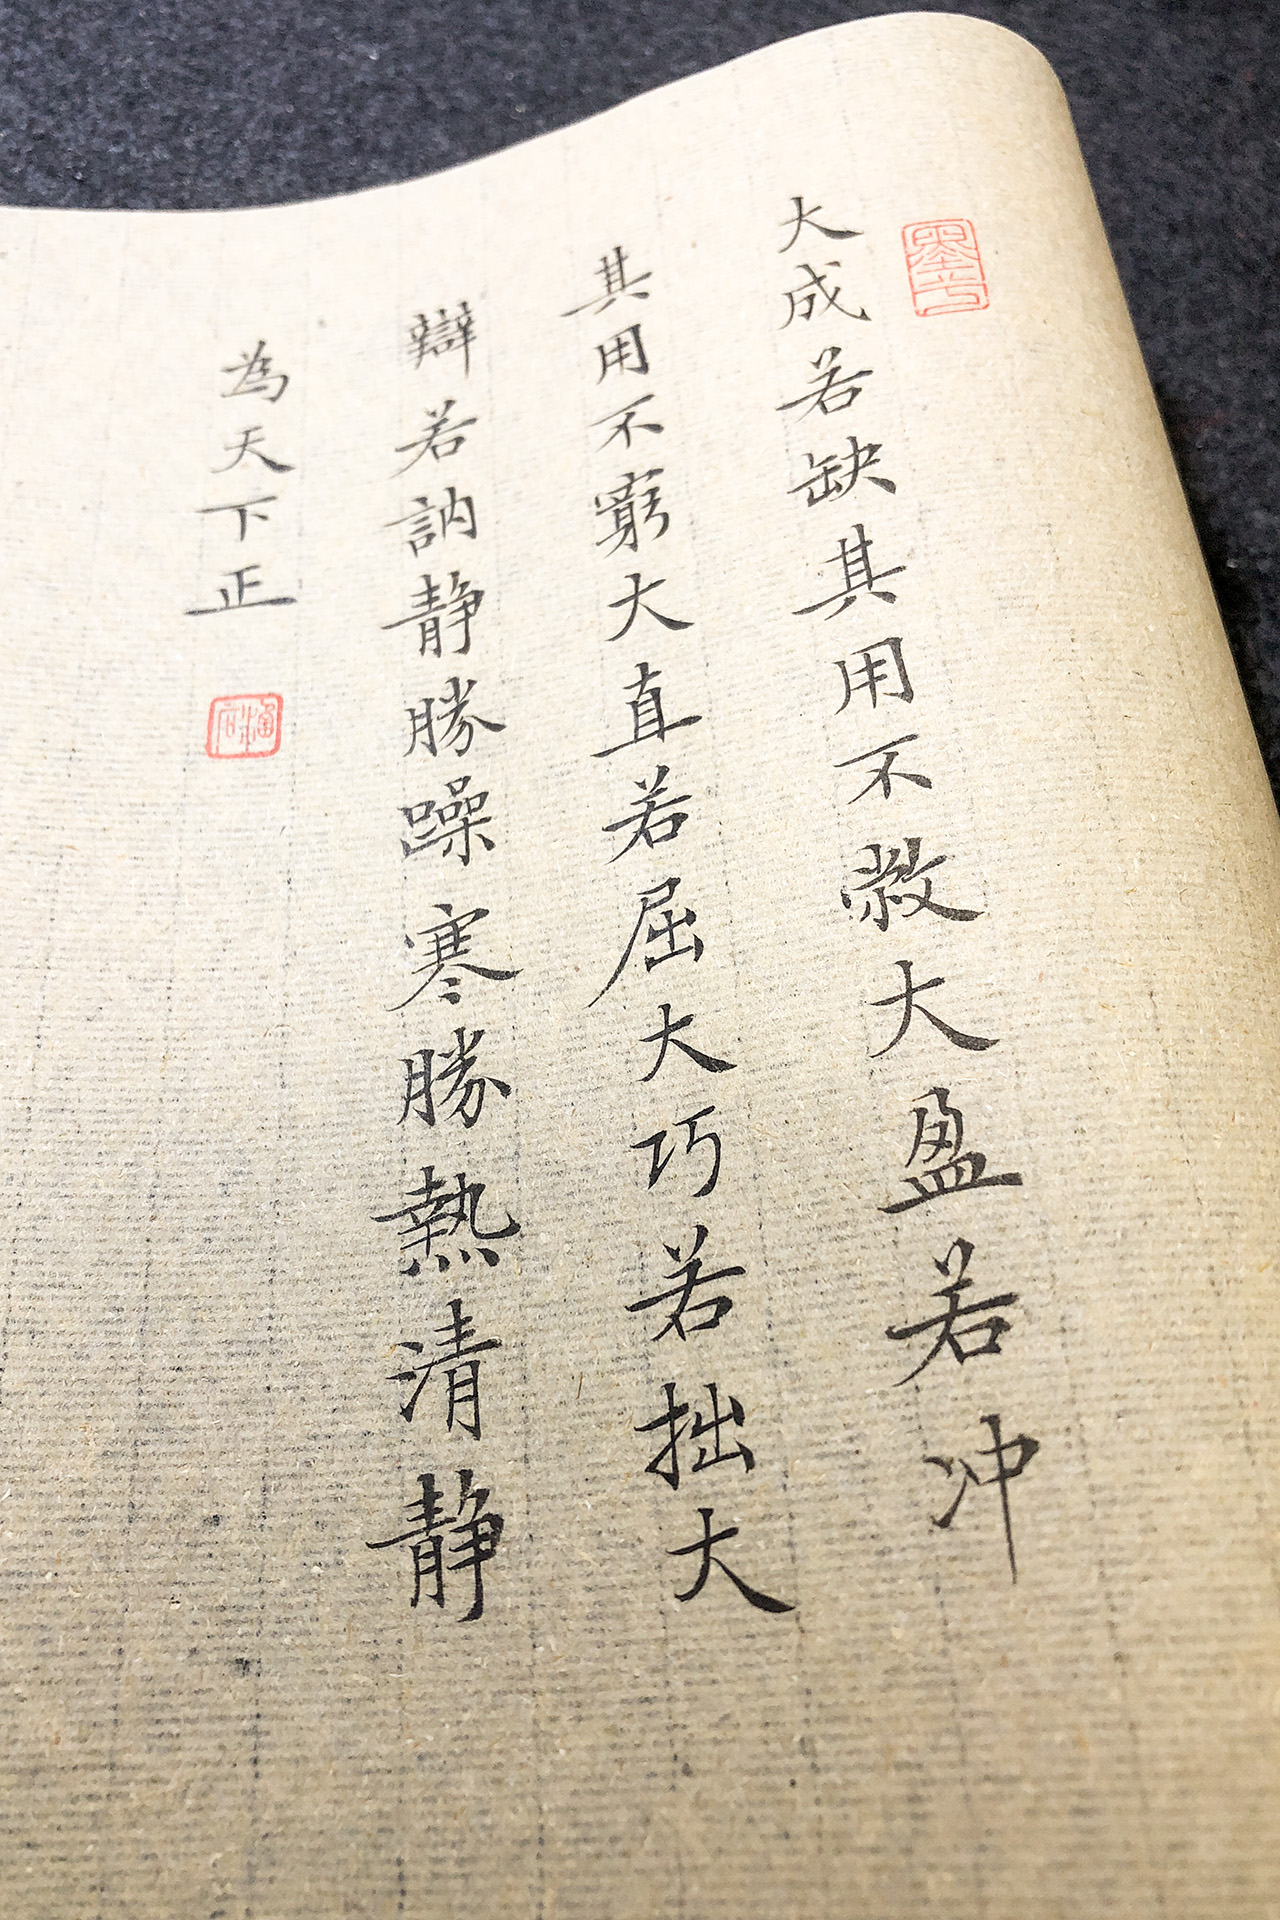 大成若缺其用不敝大盈若冲
其用不窮大直若屈大巧若拙大
辯若訥静勝躁寒勝熱清静
為天下正